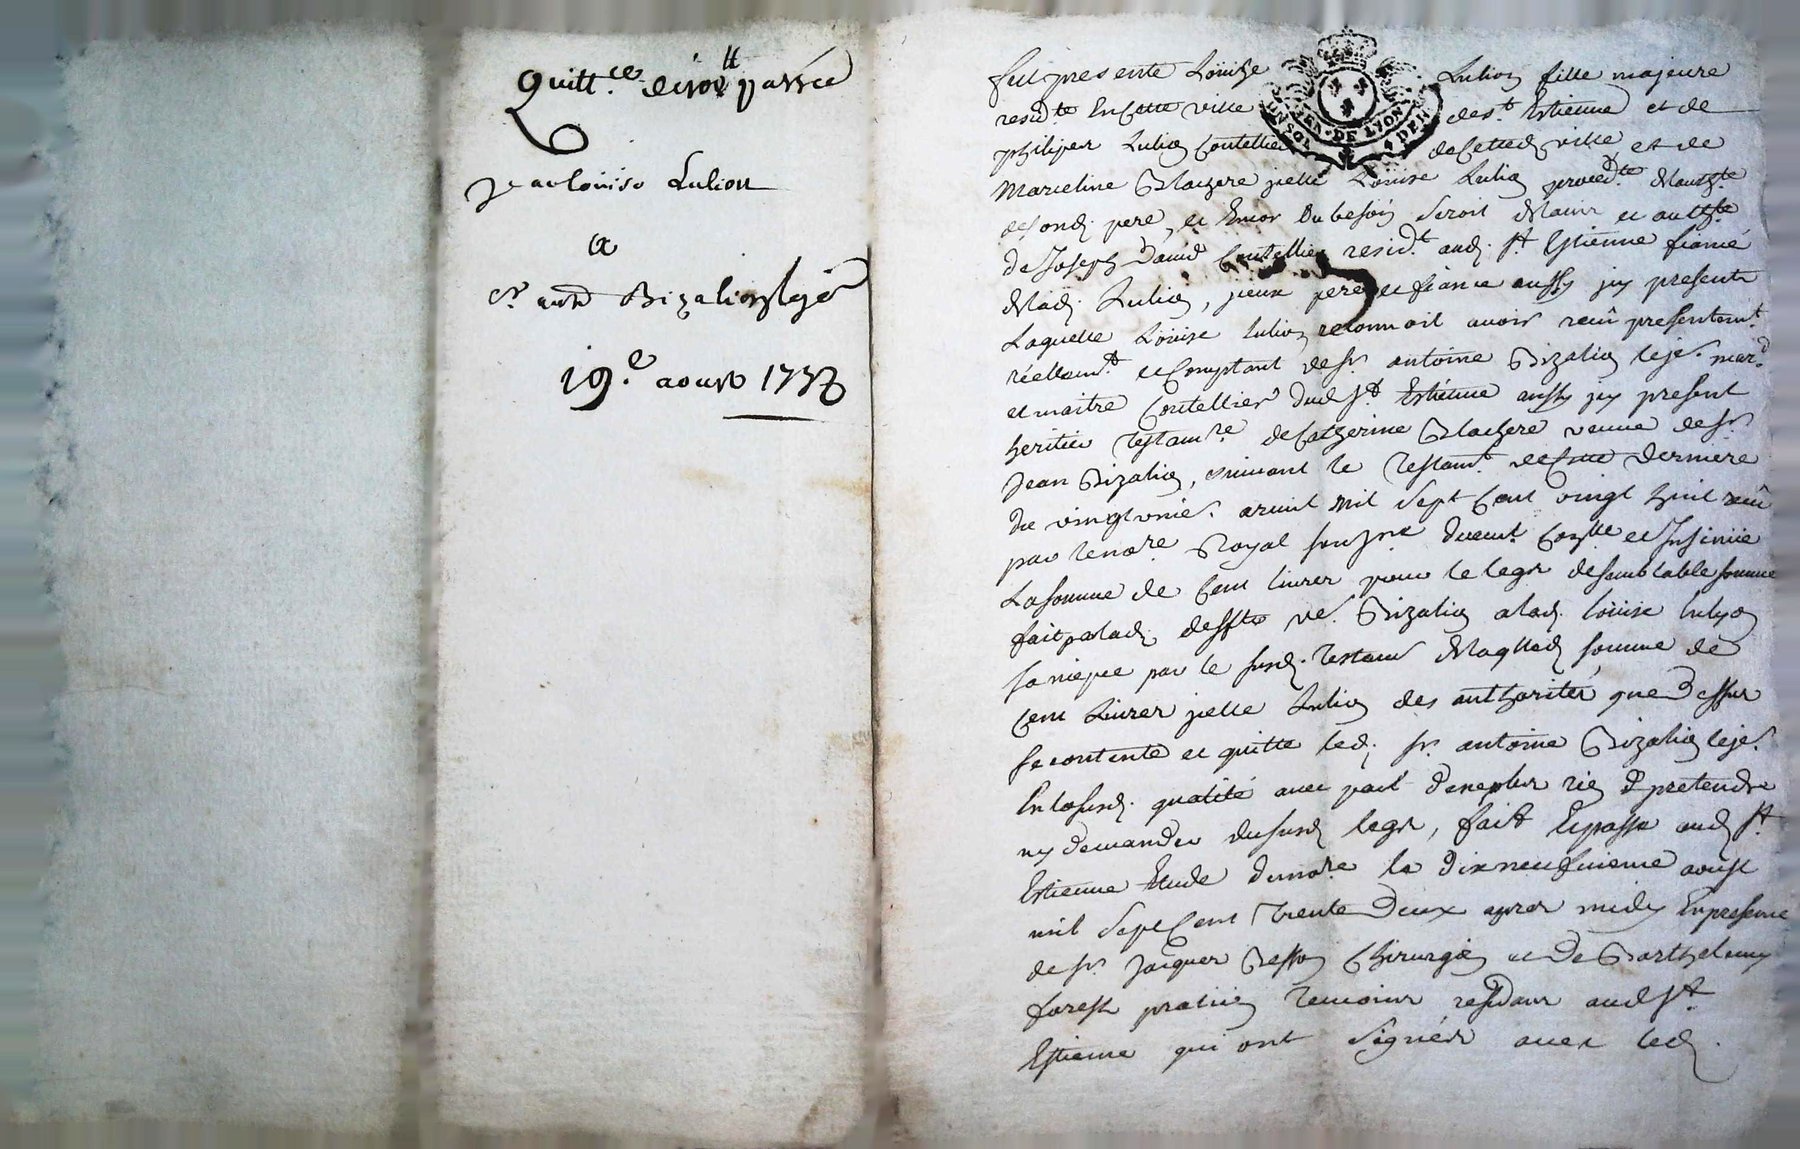 Quitt.ce de 100 tt passée
par Louise Lulion
a
sr. anth Bizalion le je
19.e aoust 1732
fut presente Loüise Lulion fille majeure
resid.te En Cette ville de St. Estienne et de
philiper Lulion Coutellier de Cetted. ville et de
Marcelline Blachere jcelle Loüise Lulion proced.te de lauth.te
de sond. pere, et Encor du besoin seroit de lavis et auth.te
de Joseph David Coutellier resid.t aud. St Estienne fiancé
de lad. Lulion, jceux pere et fiancé aussy jcy presents
Laquelle Loüise Lulion reconnoit avoir reçû presentem.t
réellem.t et Comptant de sr. antoine Bizalion le je. mar.d
et maitre Coutellier dud St. Estienne aussy jcy present
heritier testam.re de Catherine Blachere veuve de sr
Jean Bizalion, suivant le testam.t de derniere
du vingt unie. avril mil sept Cent vingt huit reçû
par le no.re Royal sousne. düemt. Con.llé et Insinüé
La somme de Cent livres pour le legs de semblable somme
fait par lad. deffte ve. Bizalion a lad. Loüise Lulion
sa niepce par le susd. testamt de laq.lle d. somme de
Cent Livres jcelle Lulion des authorités que Dessus
se contente et quitte led. sr. antoine Bizalion le je.
En la susd. qualité avec pact de ne plus rien d pretendre
ny demander du susd legs, fait Et passé aud St.
Estienne Etude du no.re le dixneufvieme aoust
mil sept Cent trente Deux apres midy En presence
de sr. Jacques Besson Chirurgien et de Barthelemy
forest praticien temoins residans aud St.
Estienne qui ont signés avec led.
GEN. DE LYON